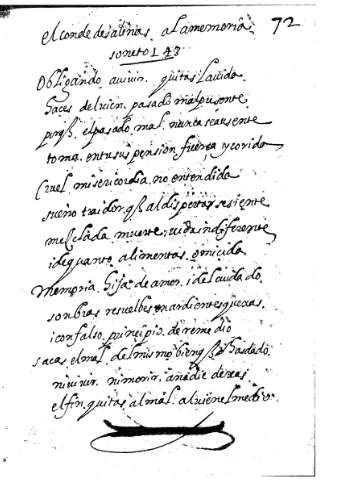 72
el conde de salinas. a la memoria
soneto 143
Obligando a vivir. quitas la vida
haces del vien. pasado mal presente
porq̃. el pasado mal. nunca se ausente
toma. en tu suspension fuerça y corida
Cruel misericordia. no entendida
sueño traidor. q̃ al dispertar se siente
mezclada muerte. vida indiferente
i de quanto alimentas. omicida
Memoria. hija. de amor. i de cuidado.
sonbras resuelbes en ardientes quexas.
i con falso. principio. de remedio
sacas. el mal. del mismo bien q̃ has dado.
ni vivir. ni morir. a nadie dexas
el fin. quitas al mal. al vien el medio.